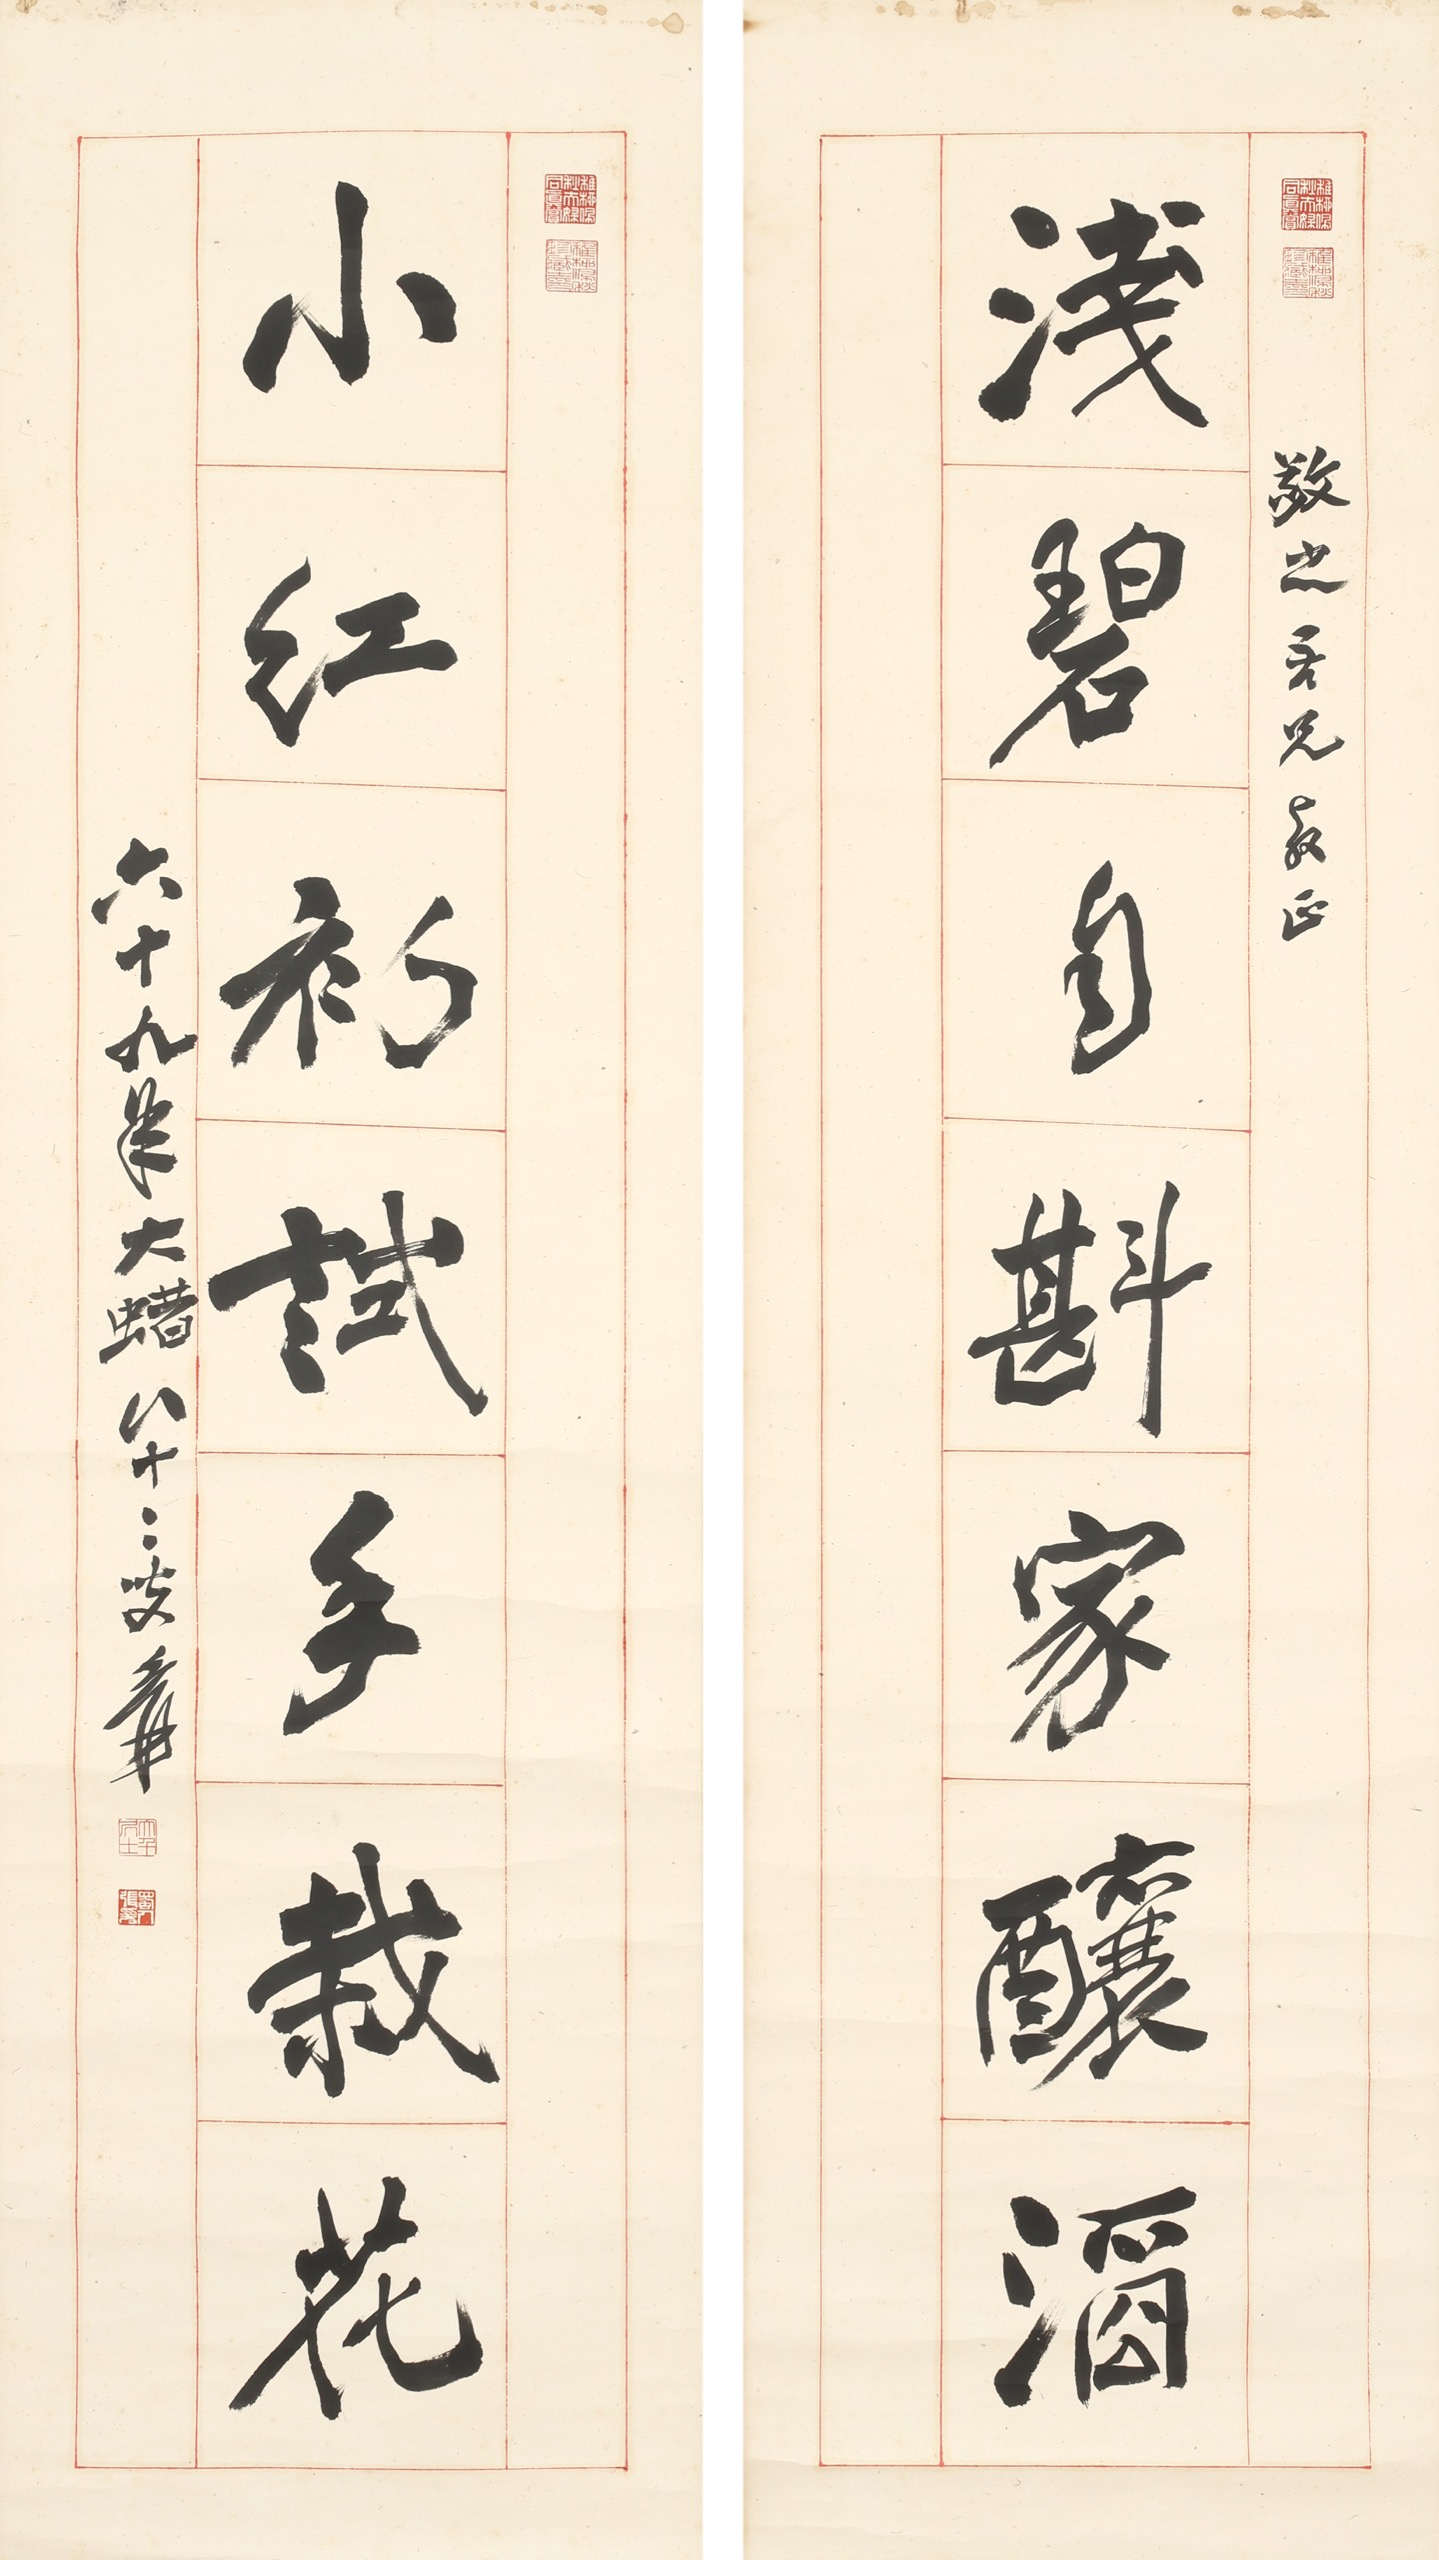 敬之吾兄教正
淺碧自斟家釀酒
小紅初試手栽花
六十九年大蜡八十二叟爰